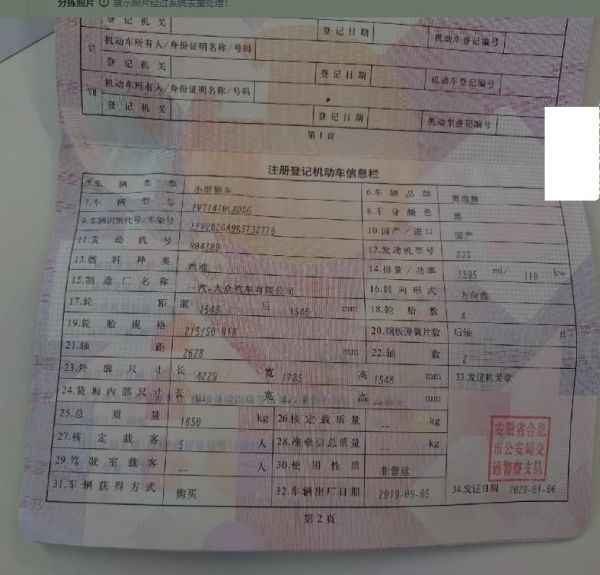 分拣照片 展示照片经过系统去重处理!
登记机关 登记日期 机动车登记编号
Ⅵ 机动车所有人/身份证明名称/号码
登记机关 登记日期 机动车登记编号
Ⅶ 机动车所有人/身份证明名称/号码
登记机关 登记日期 机动车登记编号
第1页
注册登记机动车信息栏
5.车辆类型 小型轿车 6.车辆品牌
7.车辆型号 8.车身颜色 黑
9.车辆识别代号/车架号 10.国产/进口 国产
11.发动机号 R04389 12.发动机型号 DJS
13.燃料种类 汽油 14.排量/功率 1395 ml/ 110 kw
15.制造厂名称 一汽-大众汽车有限公司 16.转向形式 方向盘
17.轮距 前 1543 后 1546 mm 18.轮胎数 4
19.轮胎规格 215/50 R18 20.钢板弹簧片数 后轴 片
21.轴距 2628 mm 22.轴数 2
23.外廓尺寸 长 4229 宽 1785 高 1548 mm 33.发证机关章
24.货厢内部尺寸 长 宽 高 mm
25.总质量 1850 kg 26.核定载质量 -- kg
27.核定载客 5 人 28.准牵引总质量 -- kg
29.驾驶室载客 -- 人 30.使用性质 非营运
安徽省合肥
市公安局交
通警察支队
31.车辆获得方式 购买 32.车辆出厂日期 2019-09-05 34.发证日期 2020-01-06
第2页